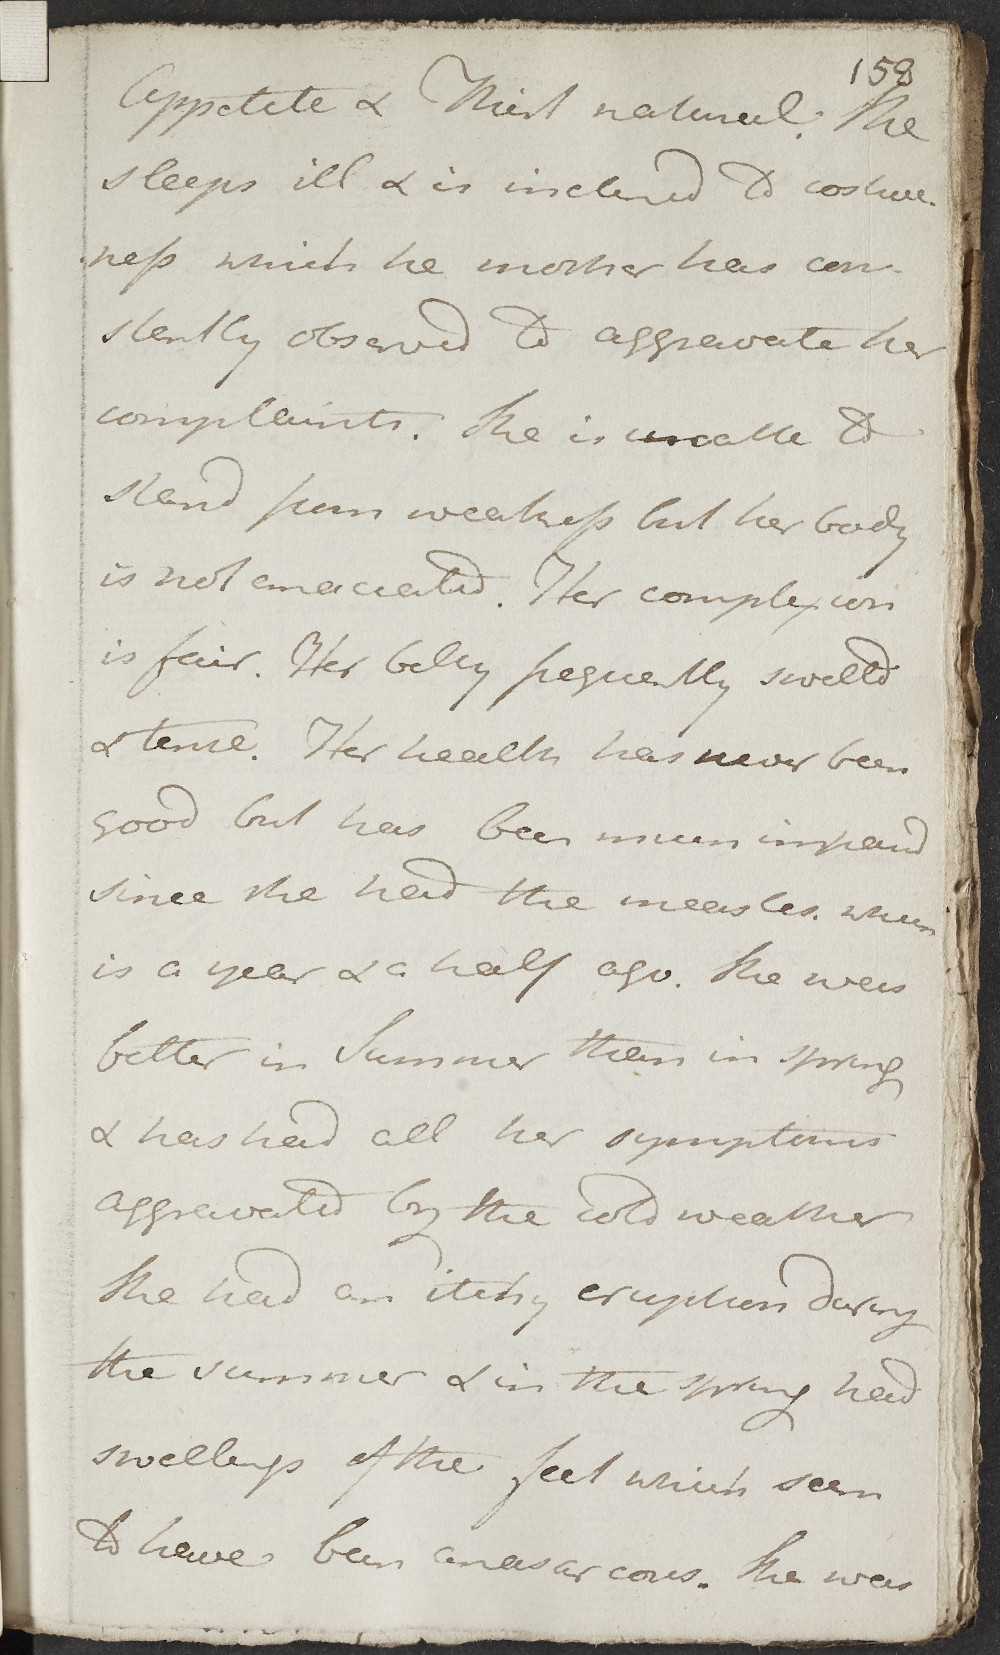 158
Appetite & Thirst natural. She
sleeps ill & is inclined to costive-
-ness which he mother has con-
stantly observed to aggravate her
complaints. She is unable to
stand from weakness but her body
is not emaciated. Her complexion
is fair. Her belly frequently swelld
& tense. Her health has never been
good but has been much impaird
since she had the measles. which
is a year & a half ago. She was
better in Summer than in spring
& has had all her symptoms
aggravated by the cold weather
She had an itchy eruption during
the summer & in the spring had
swellings of the feet which seem
to have been anasarcous. She was